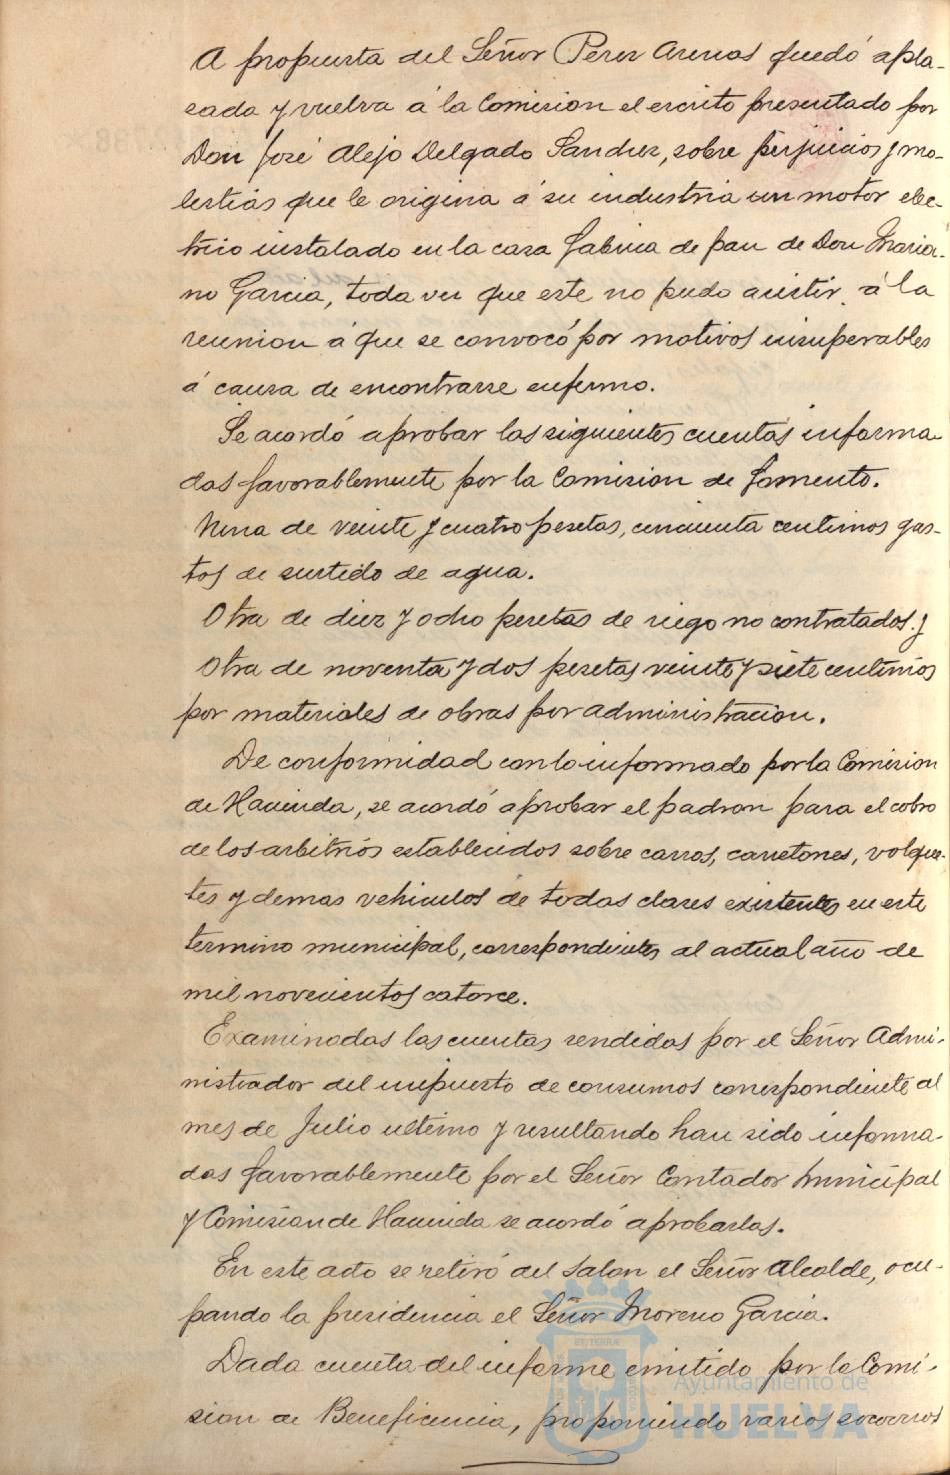 A propuesta del Señor Perez Arenas quedó apla-
zada y vuelva á la Comision el escrito presentado por
Don José Alejo Delgado Sanchez, sobre perjuicios y mo-
lestias que le origina á su industria un motor elec-
trico instalado en la casa fabrica de pan de Don Maria-
no Garcia, toda vez que este no pudo asistir á la
reunion á que se convocó por motivos insuperables
á causa de encontrarse enfermo.
Se acordó aprobar las siguientes cuentas informa-
das favorablemente por la Comision de Fomento.
Una de veinte y cuatro pesetas, cincuenta centimos gas-
tos de surtido de agua.
Otra de diez y ocho pesetas de riego no contratados. y
Otra de noventa y dos pesetas veinte y siete centimos
por materiales de obras por administracion.
De conformidad con lo informado por la Comision
de Hacienda, se acordó aprobar el padron para el cobro
de los arbitrios establecidos sobre carros, carretones, volque-
tes y demas vehiculos de todas clases existentes en este
termino municipal, correspondientes al actual año de
mil novecientos catorce.
Examinadas las cuentas rendidas por el Señor Admi-
nistrador del impuesto de consumos correspondiente al
mes de Julio ultimo y resultando han sido informa-
das favorablemente por el Señor Contador Municipal
y Comision de Hacienda se acordó aprobarlas.
En este acto se retiró del Salon el Señor Alcalde, ocu-
pando la presidencia el Señor Moreno Garcia.
Dada cuenta del informe emitido por la Comi-
sion de Beneficencia, proponiendo varios socorros
Ayuntamiento de
HUELVA